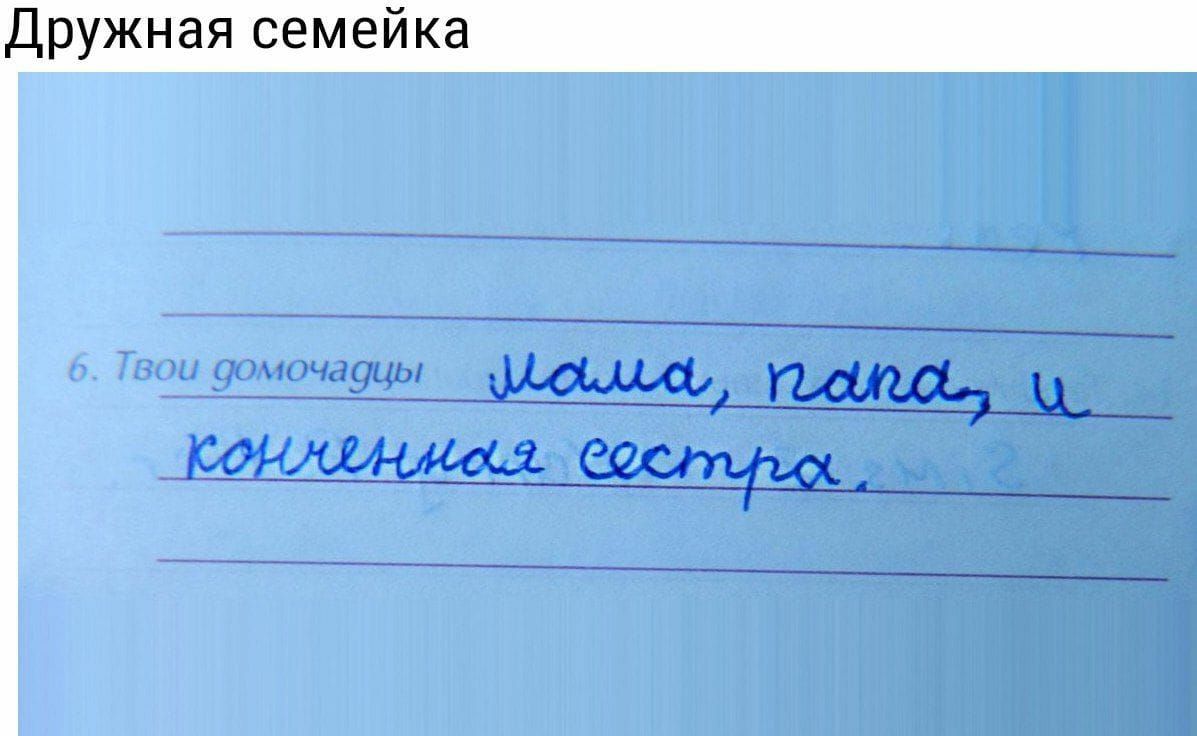 Дружная семейка
6. Твои домочадцы мама, папа, и
конченная сестра.